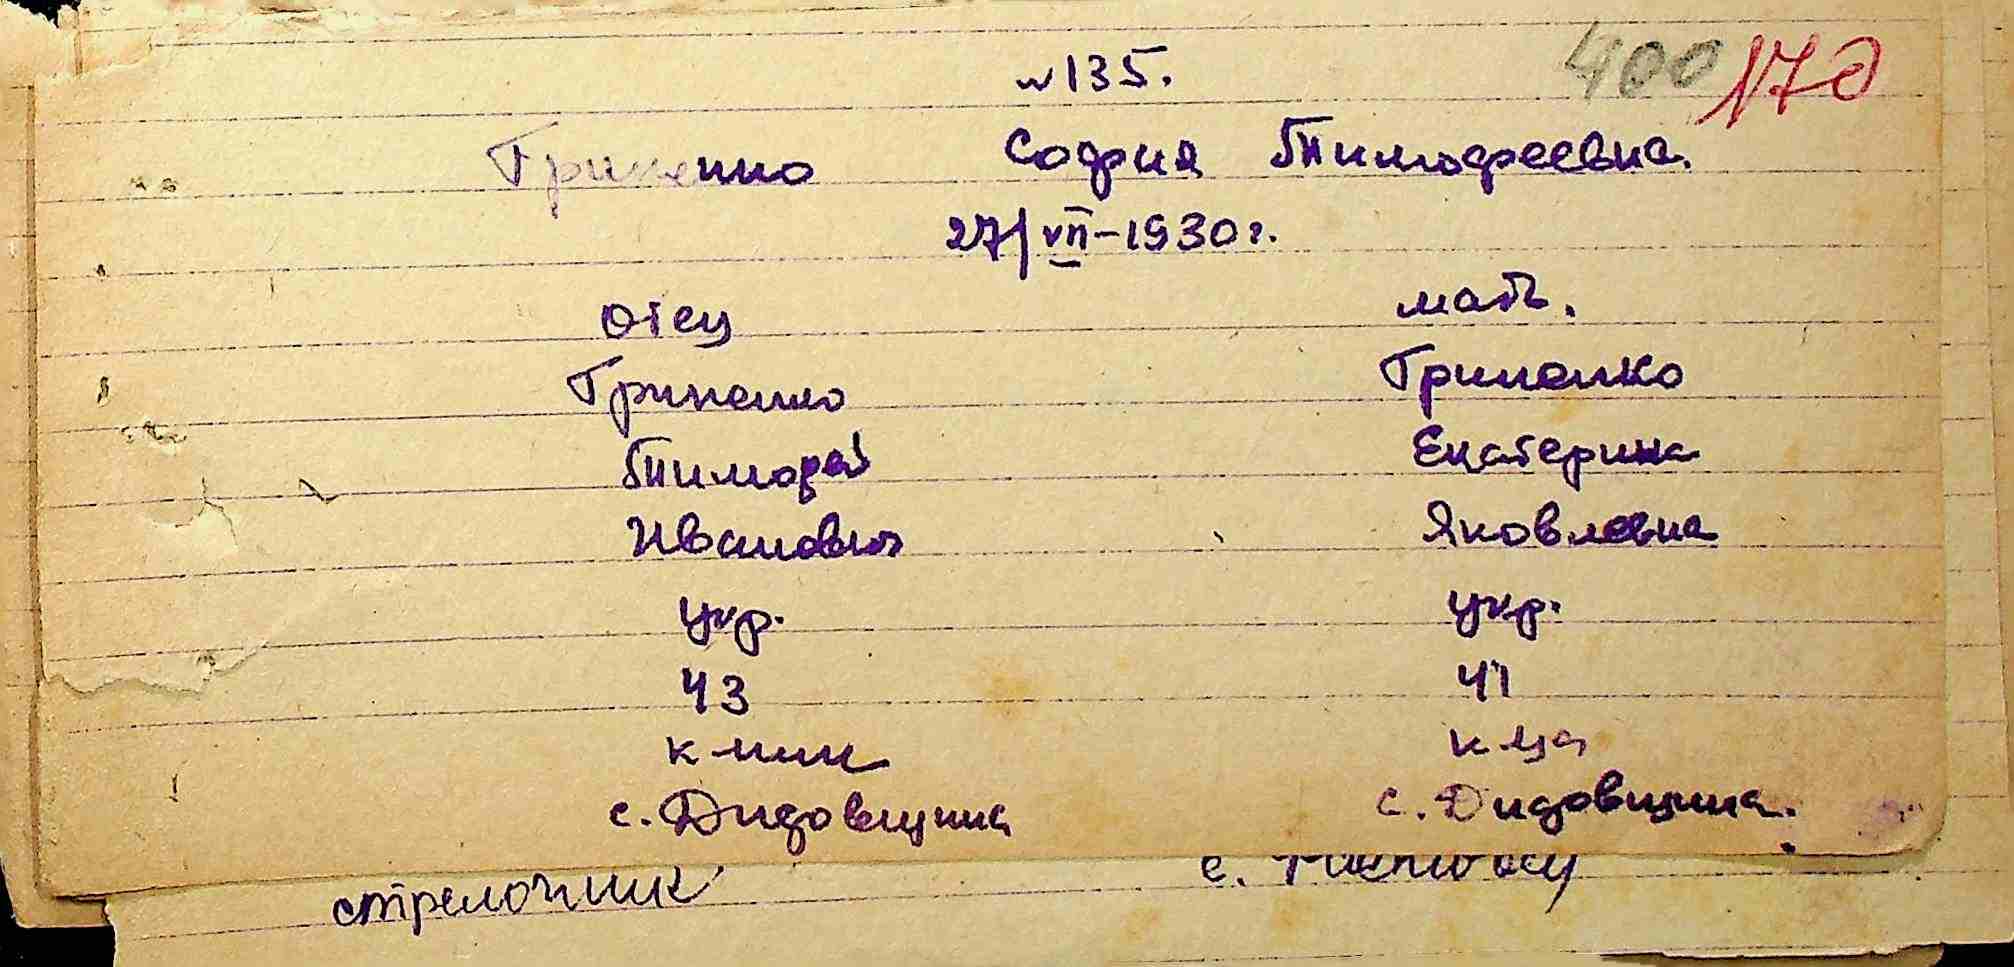 400 170
№135.
Гриненко София Тимофеевна.
27/VII-1930г.
отец мать.
Гриненко Гриненко
Тимофей Екатерина
Иванович Яковлевна
укр. укр.
43 41
к-ник к-ца
с. Дидовщина с. Дидовщина.
стрелочник с.